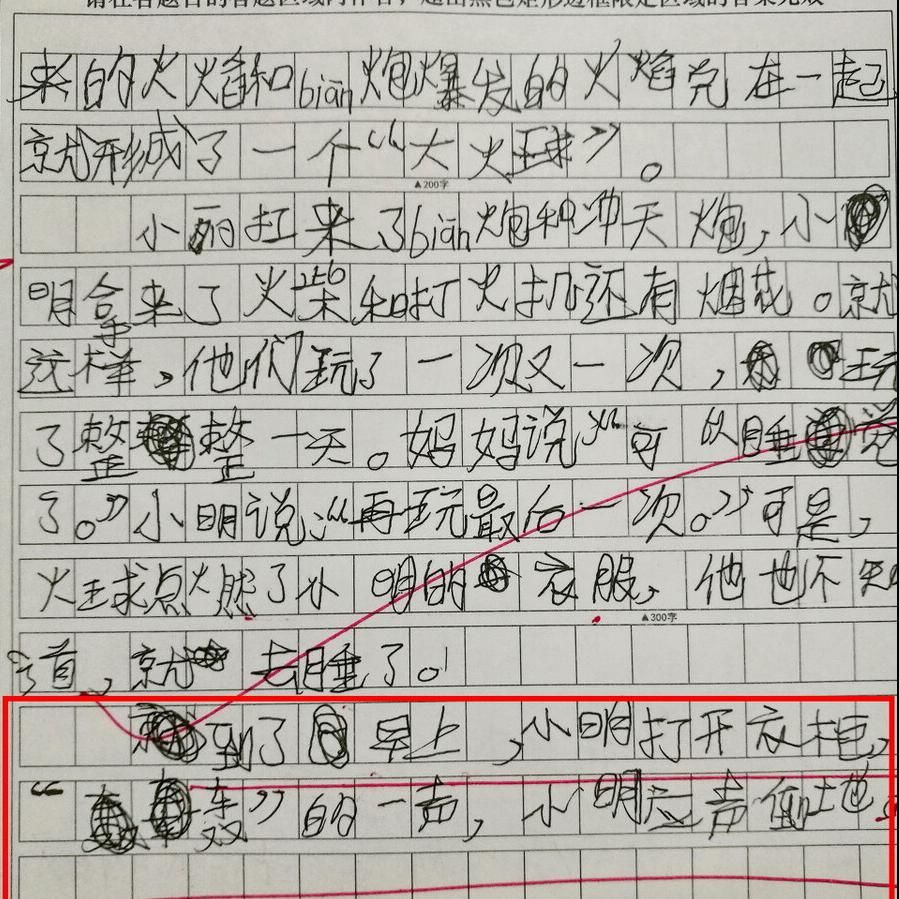 请在各题目的答题区域内作答，超出黑色矩形边框限定区域的答案无效
来的火焰和biān炮爆发的火焰克在一起
就形成了一个“大火球”。
▲200字
小丽扛来了biān炮和冲天炮，小
明拿来了火柴和打火机还有烟花。就
这样，他们玩了一次又一次，玩
了整整一天。妈妈说：“可以睡觉
了。”小明说：“再玩最后一次。”可是，
火球点火燃了小明的衣服，他也不知
▲300字
道，就去睡了。
到了早上，小明打开衣柜，
“轰”的一声，小明应声倒地。